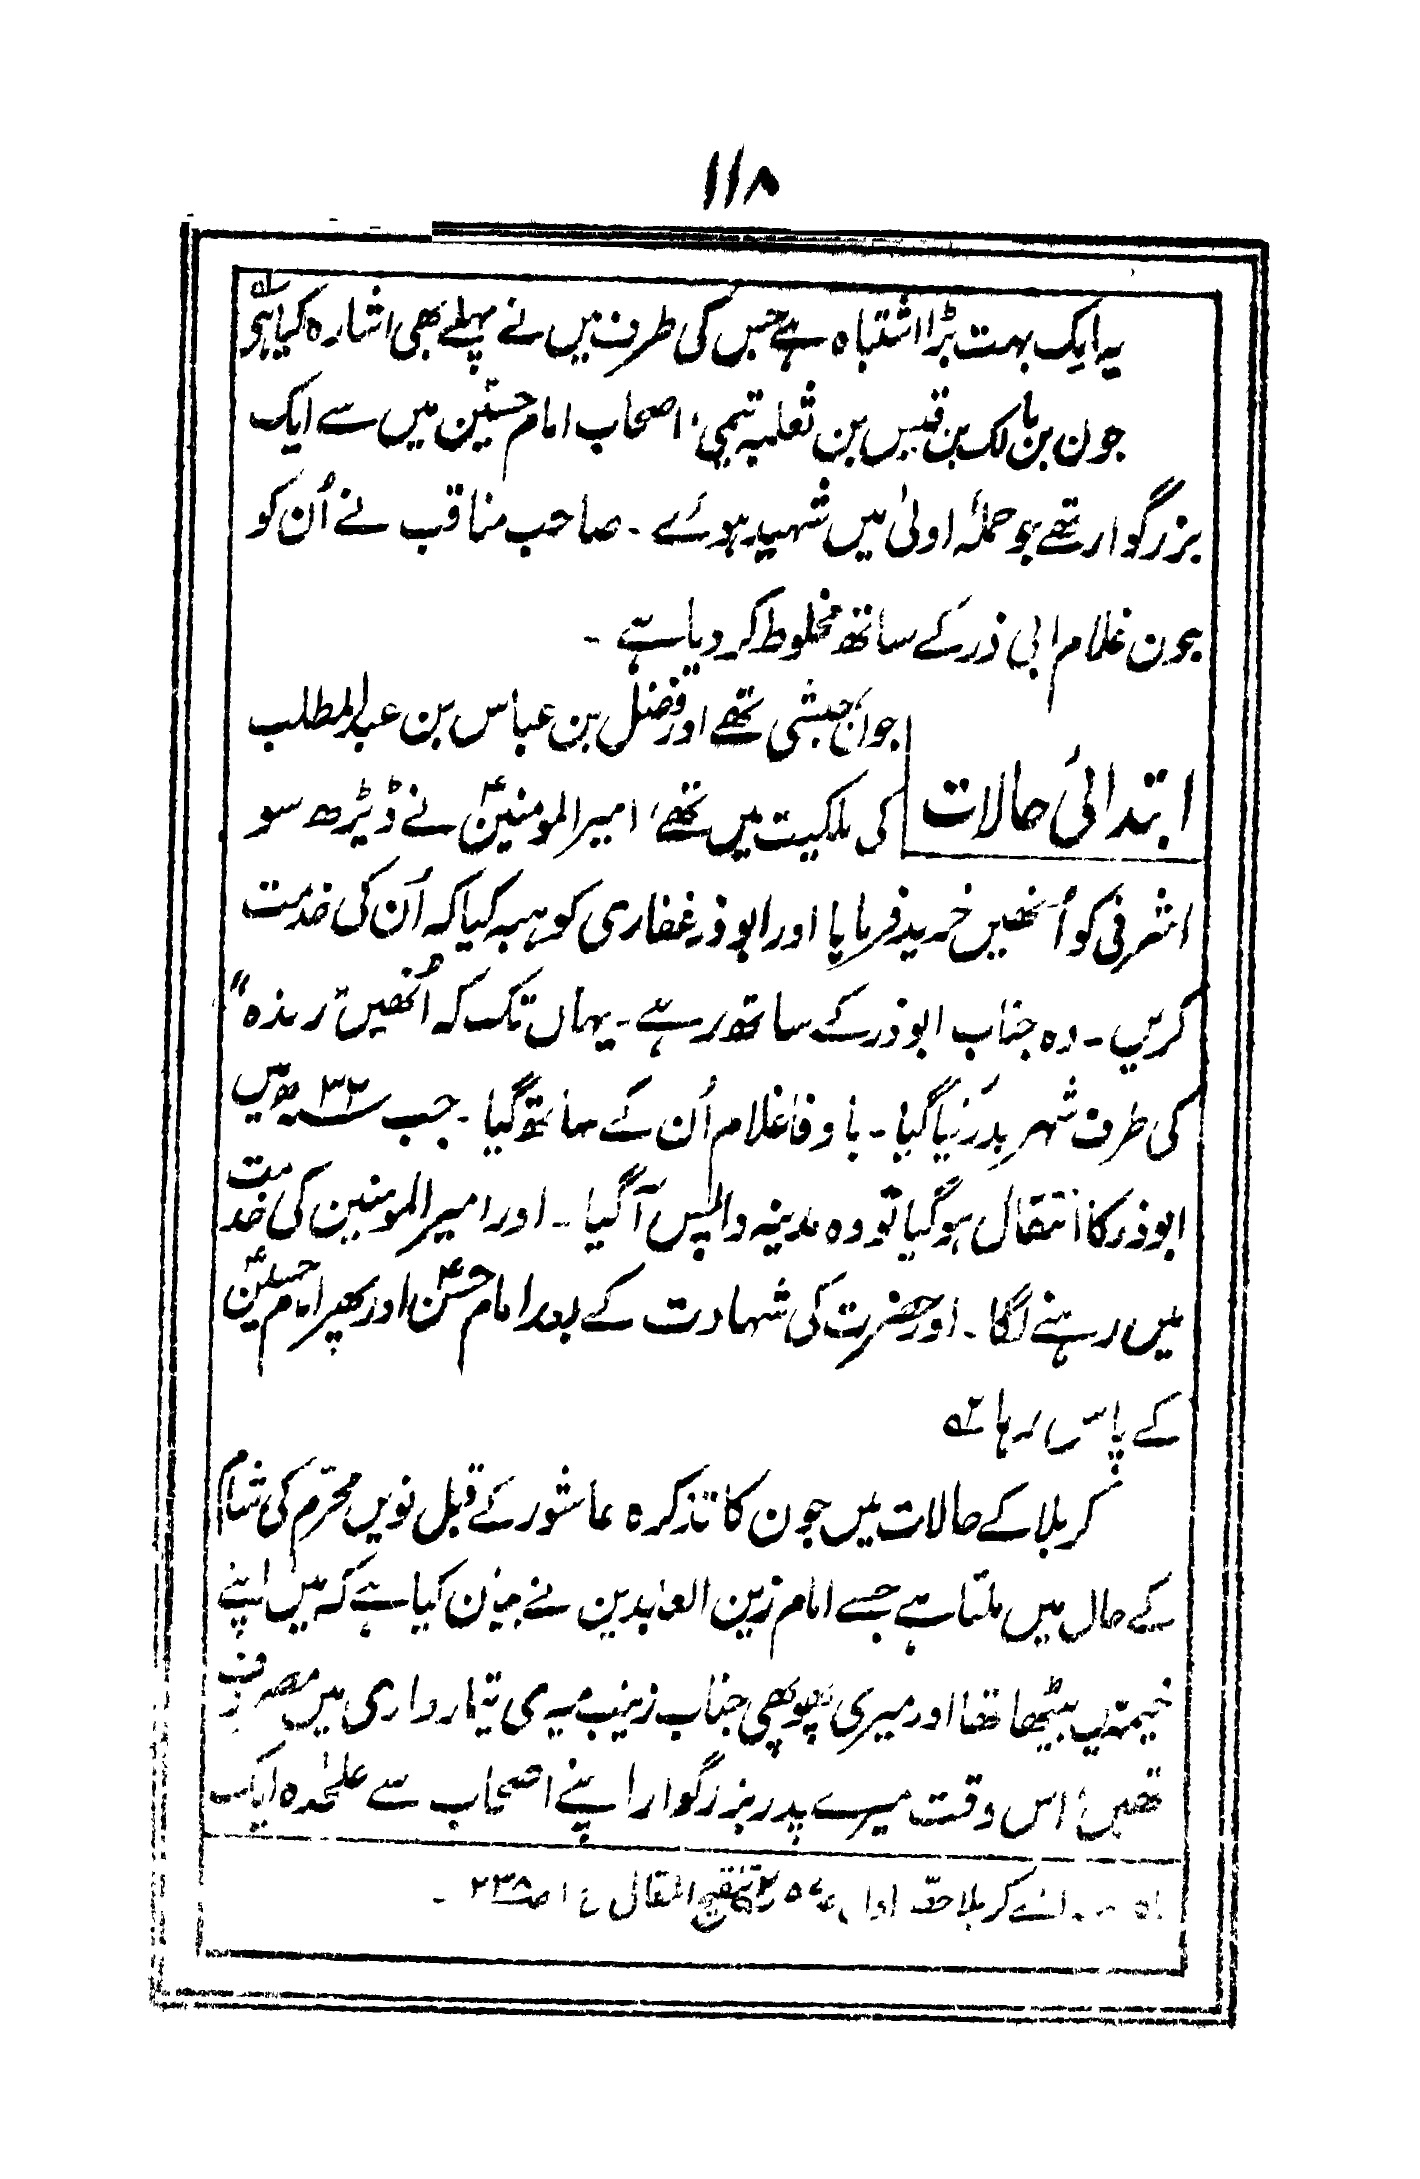 ۱۱۸
یہ ایک بہت بڑا اشتباہ ہے جس کی طرف میں نے پہلے بھی اشارہ کیا ہے
جون بن مالک بن قیس بن ثعلبہ تیمی، اصحاب امام حسینؑ میں سے ایک
بزرگوار تھے جو حملۂ اولیٰ میں شہید ہوئے ۔ صاحب مناقب نے اُن کو
جون غلام ابی ذر کے ساتھ مخلوط کر دیا ہے ۔
ابتدائی حالات
جون حبشی تھے اور فضل بن عباس بن عبدالمطلب
کی ملکیت میں تھے، امیرالمومنینؑ نے ڈیڑھ سو
اشرفی کو اُنھیں خرید فرمایا اور ابوذر غفاری کو ہبہ کیا کہ اُن کی خدمت
کریں ۔ وہ جناب ابوذر کے ساتھ رہے ۔ یہاں تک کہ اُنھیں "ربذہ"
کی طرف شہر بدر کیا گیا ۔ باوفا غلام اُن کے ساتھ گیا ۔ جب ۳۲ھ میں
ابوذر کا انتقال ہو گیا تو وہ مدینہ واپس آ گیا ۔ اور امیرالمومنین کی خدمت
میں رہنے لگا ۔ اور حضرت کی شہادت کے بعد امام حسنؑ اور پھر امام حسینؑ
کے پاس رہا ۲ھ
کربلا کے حالات میں جون کا تذکرہ عاشور کے قبل نویں محرّم کی شام
کے حال میں ملتا ہے جسے امام زین العابدین نے بیان کیا ہے کہ میں اپنے
خیمہ میں بیٹھا تھا اور میری پھوپھی جناب زینب میری تیمارداری میں مصروف
تھیں، اس وقت میرے پدر بزرگوار اپنے اصحاب سے علحٰدہ ایک
کربلا حصّہ اول تنقیح المقال ج ۱ ص ۲۳۸ ۔